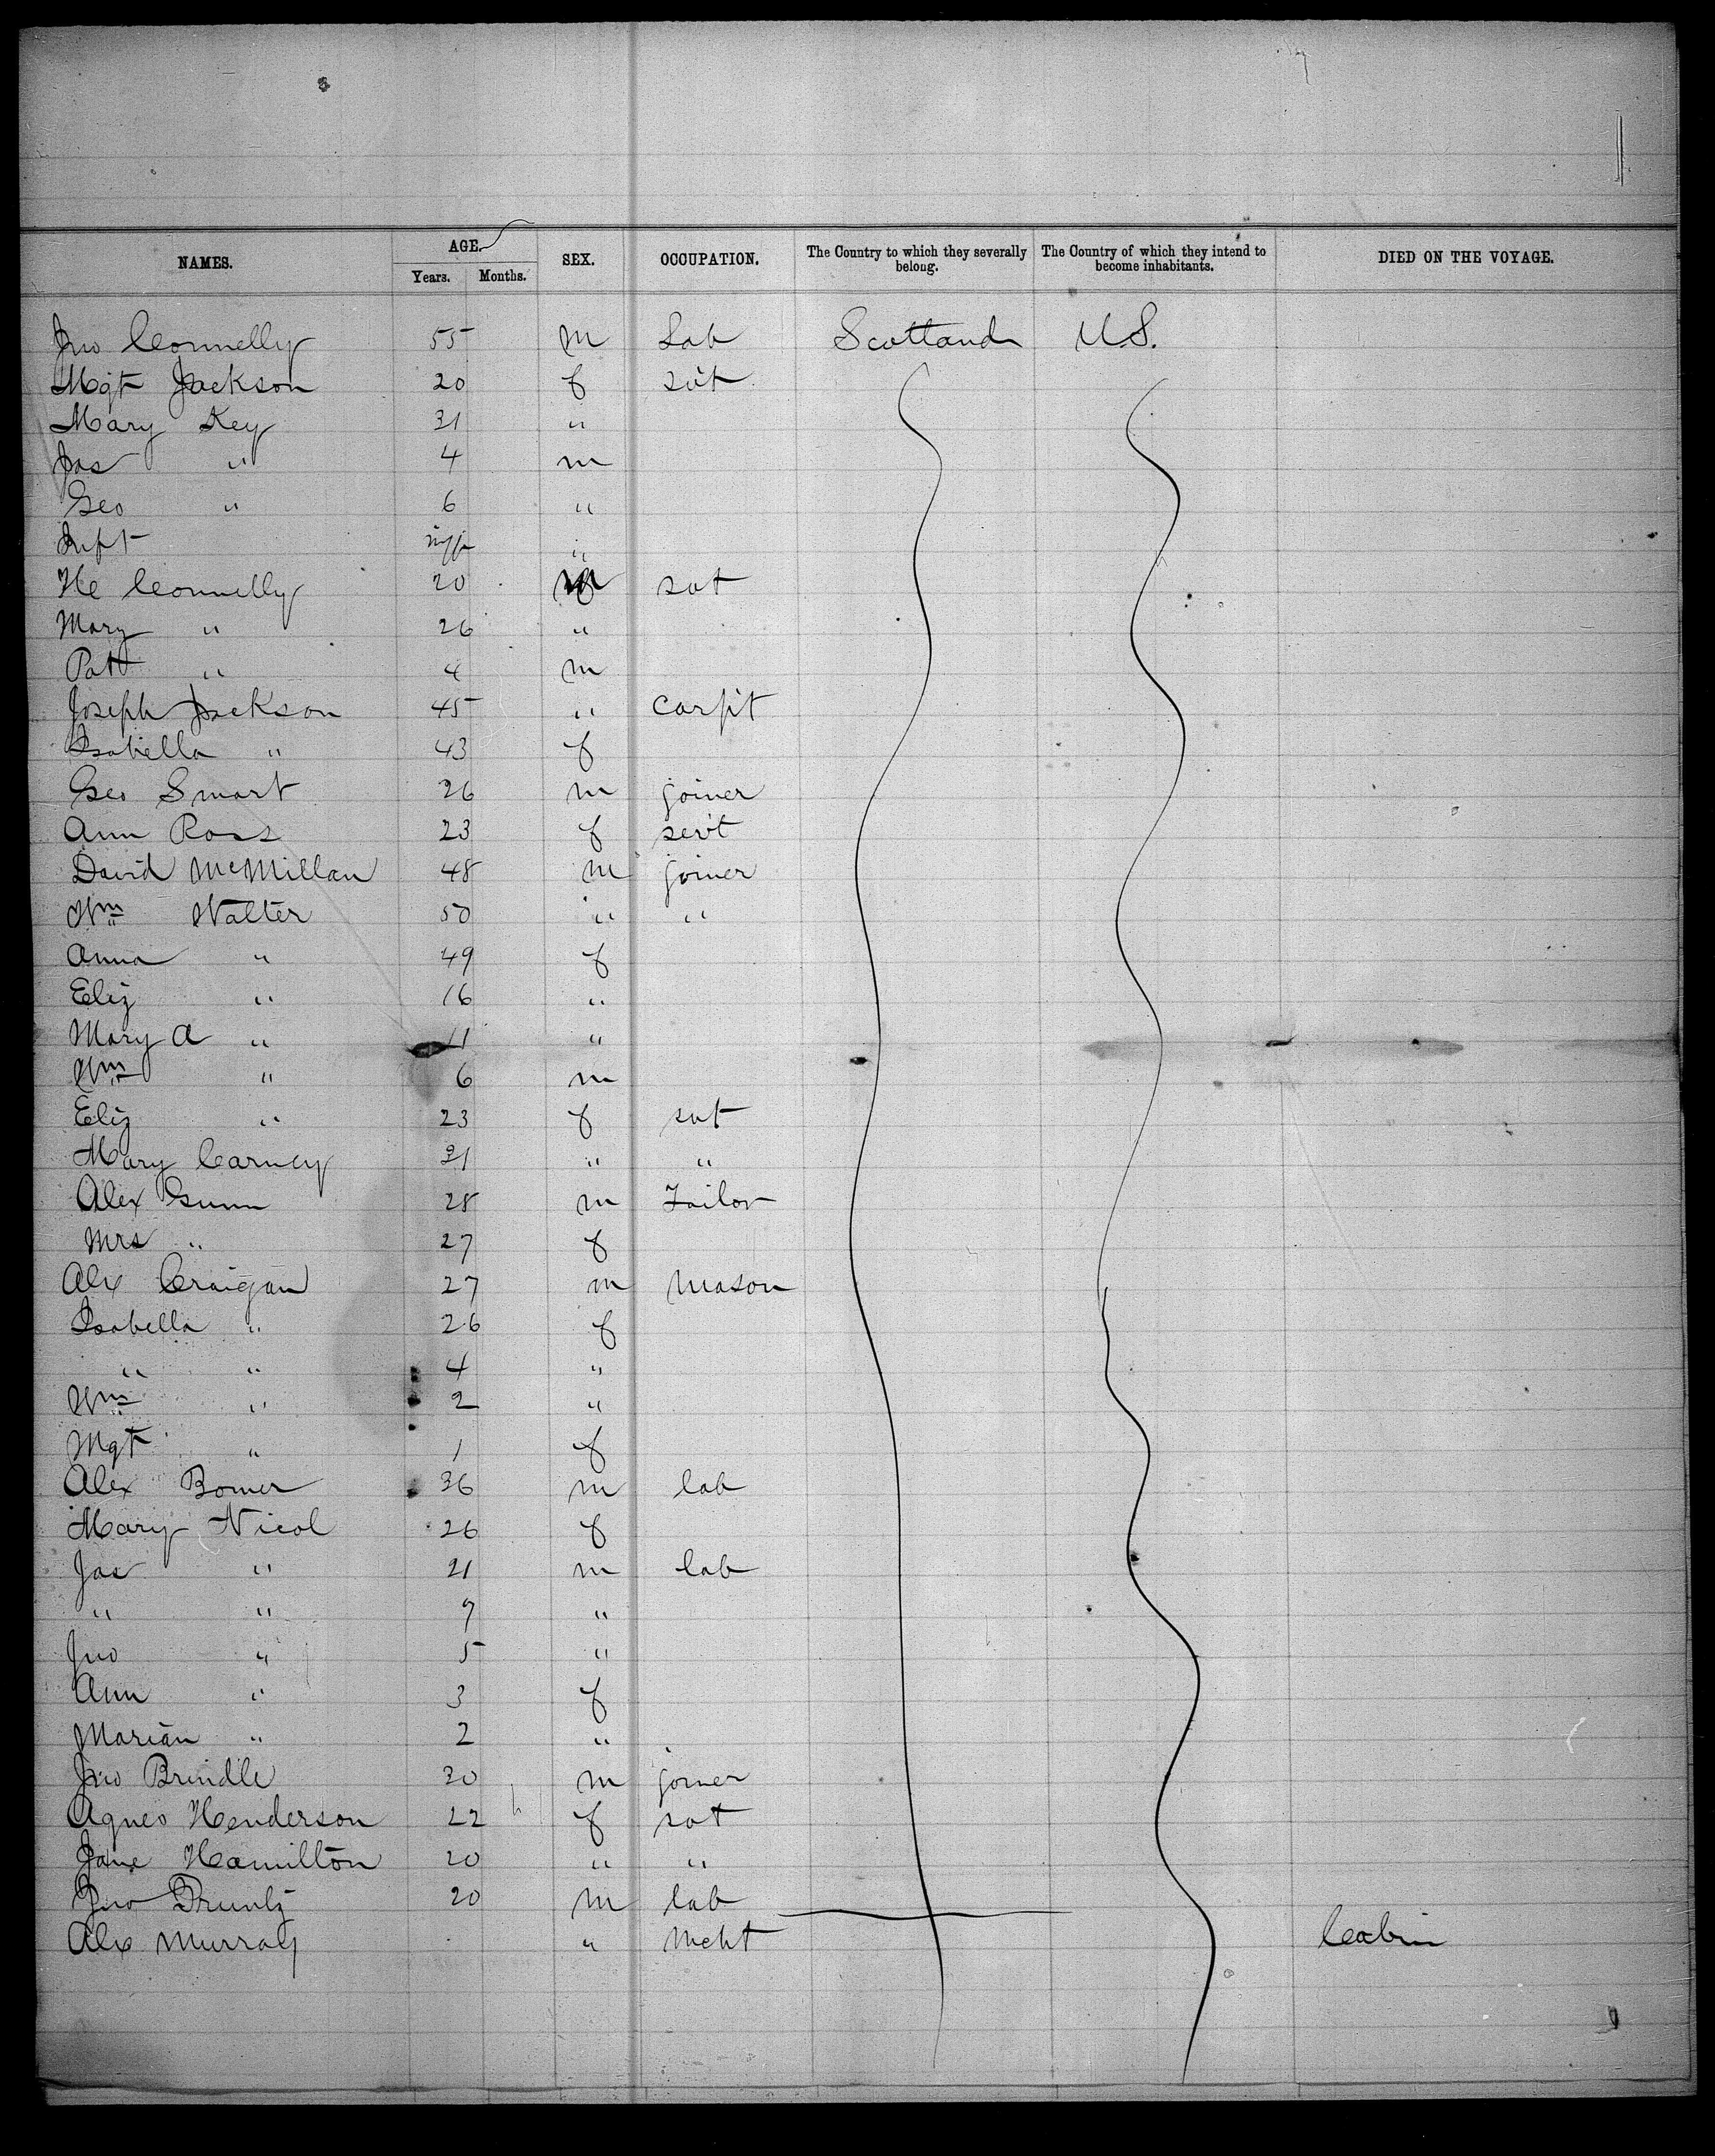 NAMES. AGE. Years. Months. SEX. OCCUPATION. The Country to which they severally belong. The Country of which they intend to become inhabitants. DIED ON THE VOYAGE.
Jno Connelly 55 m Lab Scotland U.S.
Mgt Jackson 20 f svt
Mary Key 31 "
Jas " 4 m
Geo " 6 "
Inft inft "
He Connelly 20 svt
Mary " 26 "
Pat " 4 m
Joseph Jackson 45 " carpt
Isabella " 43 f
Geo Smart 26 m joiner
Ann Ross 23 f servt
David McMillan 48 m joiner
Wm Walter 50 " "
Anna " 49 f
Eliz " 16 "
Mary A " 11 "
Wm " 6 m
Eliz " 23 f svt
Mary Carney 21 " "
Alex Gunn 28 m Tailor
Mrs " 27 f
Alex Craigan 27 m mason
Isabella " 26 f
" " 4 "
Wm " 2 "
Mgt " 1 f
Alex Bomer 36 m lab
Mary Nicol 26 f
Jas " 21 m lab
" " 9 "
Jno " 5 "
Ann " 3 f
Marian " 2 "
Jno Brindle 30 m joiner
Agnes Henderson 22 f svt
Jane Hamilton 20 " "
Jno 20 m lab
Alex Murray " Mcht Cabin